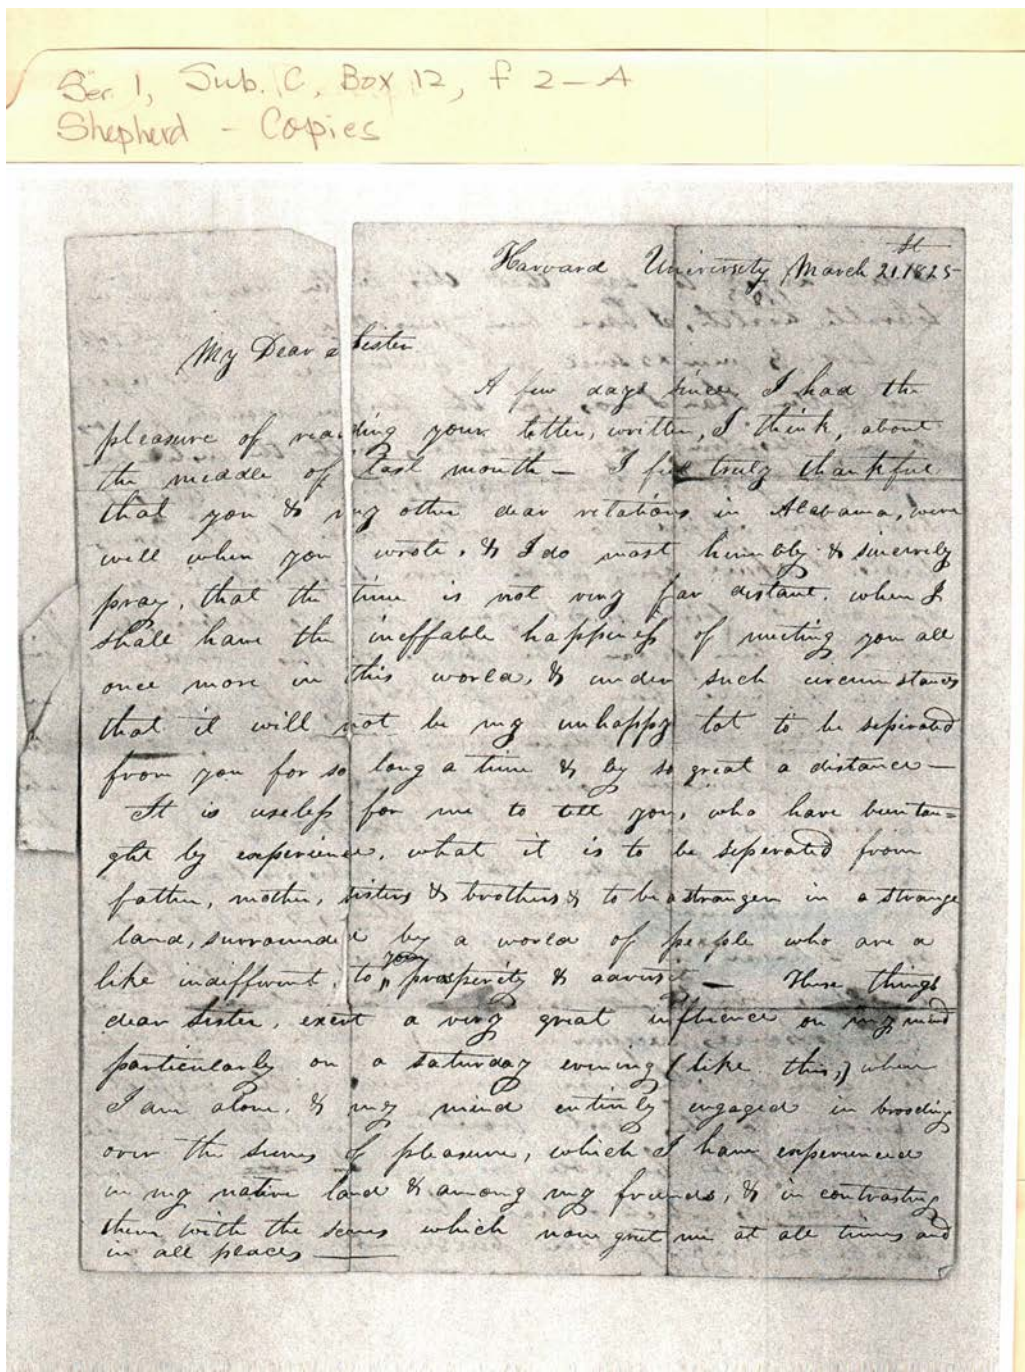 Ser. 1, Sub. C, Box 12, f 2-A
Shepherd - Copies
Harvard University March 21.st 1825
My Dear Sister
A few days since, I had the
pleasure of reading your letter, written, I think, about
the middle of last month — I feel truly thankful
that you & my other dear relations in Alabama, were
well when you wrote, & I do most humbly & sincerely
pray, that the time is not very far distant, when I
shall have the ineffable happiness of meeting you all
once more in this world, & under such circumstances
that it will not be my unhappy lot to be seperated
from you for so long a time & by so great a distance —
It is useless for me to tell you, who have been tau=
ght by experience, what it is to be seperated from
father, mother, sisters & brothers & to be a stranger in a strange
land, surrounded by a world of people who are a
like indifferent, to your prosperity & adversity — These things
dear Sister, exert a very great influence on my mind
particularly on a saturday evening (like this,) when
I am alone, & my mind entirely engaged in brooding
over the scenes of pleasure, which I have experienced
in my native land & among my friends, & in contrasting
them with the scenes which now greet me at all times and
in all places —